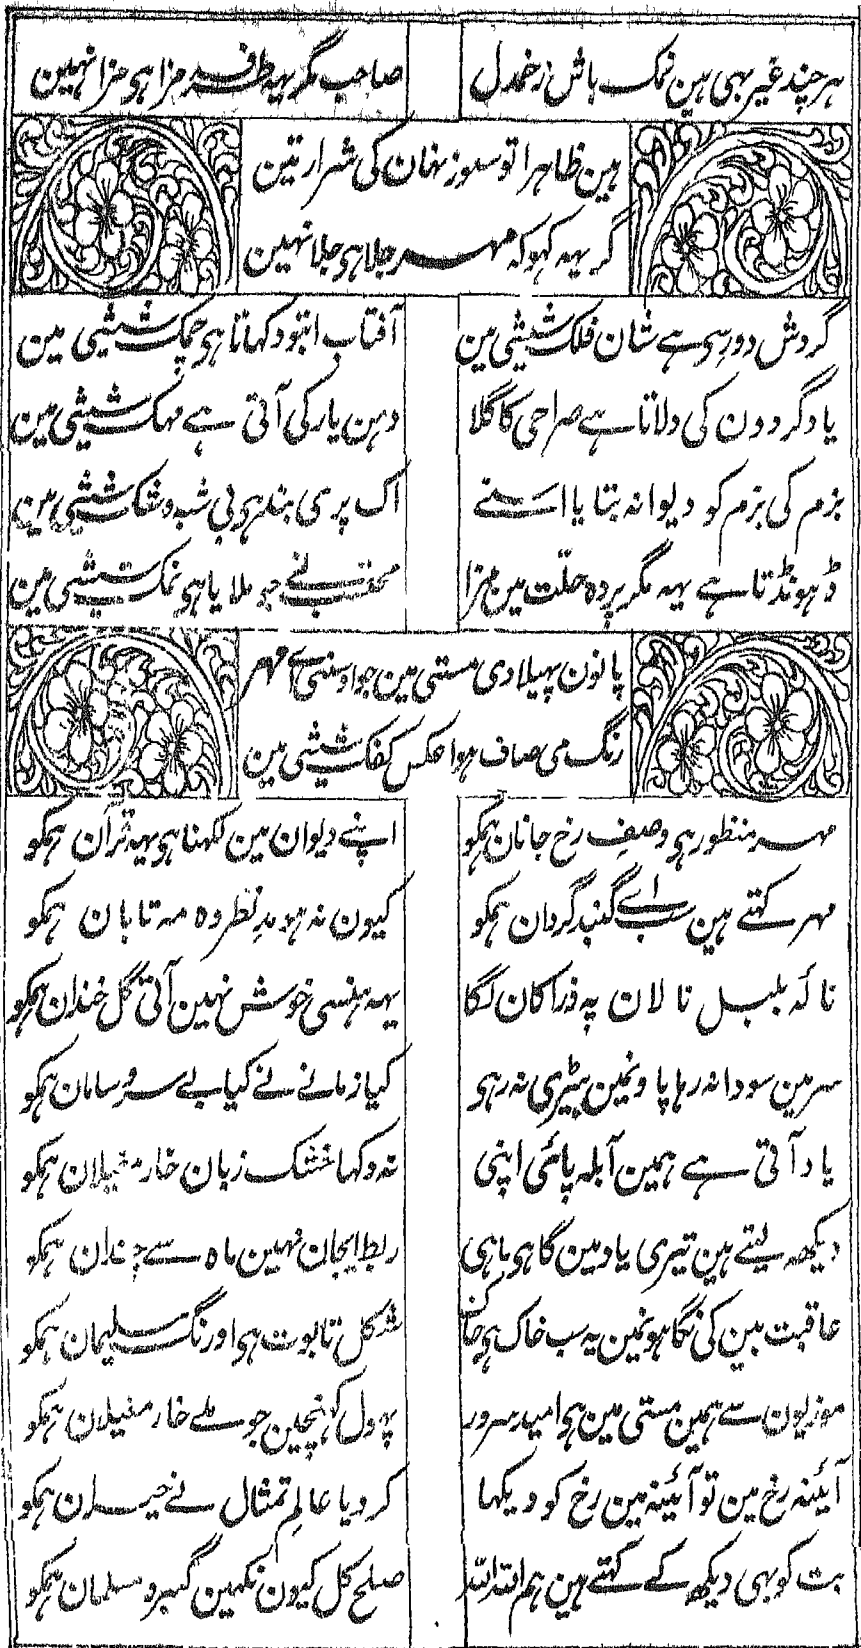 ہر چند غیر بہی ہین نمک پاش زخمدل
صاحب مگر یہہ طرفہ مزا ہو مزا نہین
ہین ظاہرا تو سوز نہان کی شرارتین
گر یہہ کہو کہ مہر جلا ہو جلا نہین
گردش دور ہو ہے شان فلک شیشی مین
آفتاب اپنو دکہاتا ہو چمک شیشی مین
یاد گردون کی دلاتا ہے صراحی کا گلا
دہن یار کی آتی ہے مہک شیشی مین
بزم کی بزم کو دیوانہ بنایا اسنے
اک پری بند ہوئی شب و شک شیشی مین
ڈہونڈتا ہے یہہ مگر پردہ حلّت مین مزا
محتسب نے جو ملایا ہو نمک شیشی مین
پانون پہیلا دی مستی مین جو اوسنی اے مہر
رنگ می صاف ہوا عکس کفک شیشی مین
مہر منظور ہو وصفِ رخ جانان ہمکو
اپنے دیوان مین لکہنا ہو یہہ قرآن ہمکو
مہر کہتے ہین سب اے گنبد گردان ہمکو
کیون نہ ہو مدِ نظر وہ مہ تابان ہمکو
نالۂ بلبل نالان پہ ذرا کان لگا
یہہ ہنسی خوش نہین آتی گل خندان ہمکو
سر مین سودا نہ رہا پاونمین بیڑی نہ رہی
کیا زمانے نے کیا بے سر و سامان ہمکو
یاد آتی ہے ہمین آبلہ پائی اپنی
نہ دکہا خشک زبان خار مغیلان ہمکو
دیکھہ لیتے ہین تیری یاد مین گاہو ماہی
ربط ایجان نہین ماہ سے چندان ہمکو
عاقبت بین کی نگاہونمین یہ سب خاک ہو جان
شکل تابوت ہو اورنگ سلیمان ہمکو
موزیون سے ہمین مستی مین ہو امید سرور
پہول کہنچین جو ملے خار مغیلان ہمکو
آئینہ رخ مین تو آئینہ مین رخ کو دیکہا
کر دیا عالمِ تمثال نے حیران ہمکو
بت کو بہی دیکھہ کے کہتے ہین ہم اللہ اللہ
صلح کل کیون نکہین گبر و مسلمان ہمکو